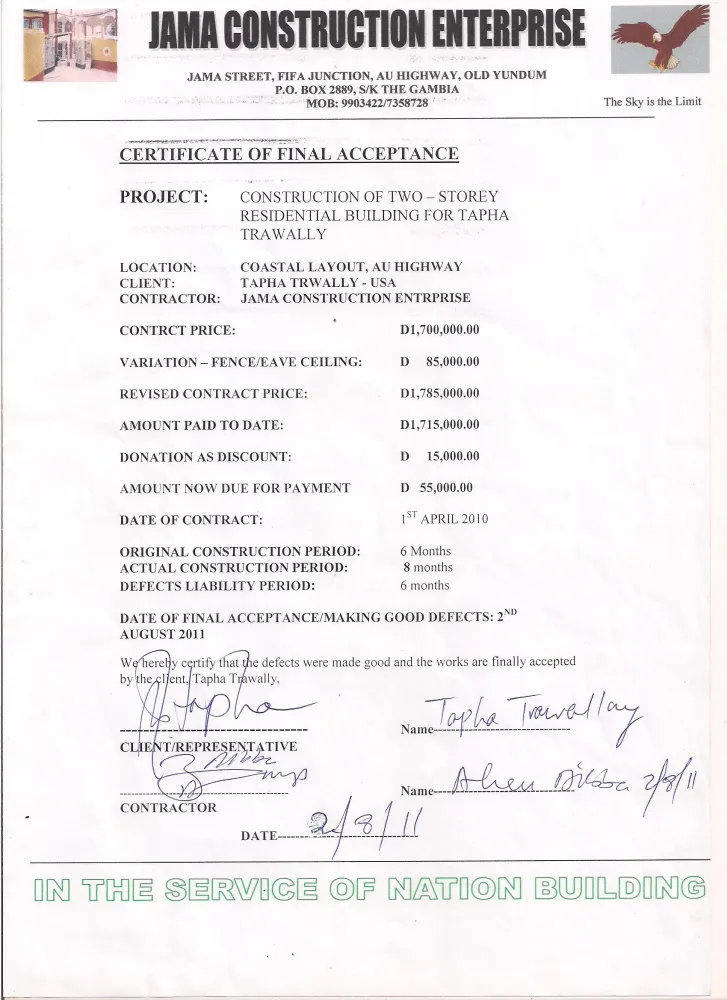 JAMA CONSTRUCTION ENTERPRISE
JAMA STREET, FIFA JUNCTION, AU HIGHWAY, OLD YUNDUM
P.O. BOX 2889, S/K THE GAMBIA
MOB: 9903422/7358728
The Sky is the Limit
CERTIFICATE OF FINAL ACCEPTANCE
PROJECT: CONSTRUCTION OF TWO – STOREY
RESIDENTIAL BUILDING FOR TAPHA
TRAWALLY
LOCATION: COASTAL LAYOUT, AU HIGHWAY
CLIENT: TAPHA TRWALLY - USA
CONTRACTOR: JAMA CONSTRUCTION ENTRPRISE
CONTRCT PRICE: D1,700,000.00
VARIATION – FENCE/EAVE CEILING: D 85,000.00
REVISED CONTRACT PRICE: D1,785,000.00
AMOUNT PAID TO DATE: D1,715,000.00
DONATION AS DISCOUNT: D 15,000.00
AMOUNT NOW DUE FOR PAYMENT D 55,000.00
DATE OF CONTRACT: 1ST APRIL 2010
ORIGINAL CONSTRUCTION PERIOD: 6 Months
ACTUAL CONSTRUCTION PERIOD: 8 months
DEFECTS LIABILITY PERIOD: 6 months
DATE OF FINAL ACCEPTANCE/MAKING GOOD DEFECTS: 2ND
AUGUST 2011
We hereby certify that the defects were made good and the works are finally accepted
by the client, Tapha Trawally,
Tapha
Name Tapha Trawallay
CLIENT/REPRESENTATIVE
Name Bibba 2/8/11
CONTRACTOR
DATE 2/8/11
IN THE SERVICE OF NATION BUILDING